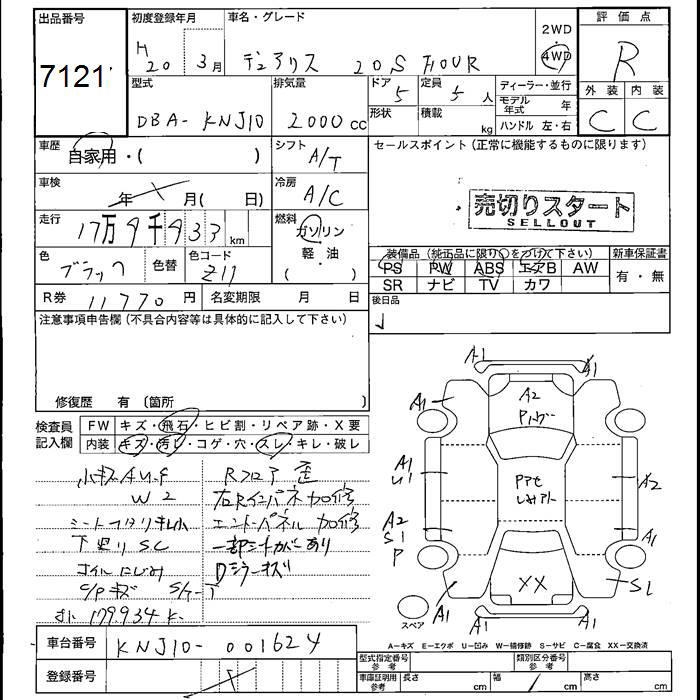 出品番号 7121
初度登録年月 H 20 3月
車名・グレード デュアリス 20S FOUR
2WD・4WD
評価点 R
外装 C 内装 C
型式 DBA-KNJ10
排気量 2000cc
ドア 5
形状
定員 5人
積載 kg
ディーラー・並行
モデル年式 年
ハンドル 左・右
車歴 自家用・( )
シフト A/T
セールスポイント(正常に機能するものに限ります)
売切りスタート
SELLOUT
車検 年 月( 日)
冷房 A/C
走行 17万9千933km
燃料 ガソリン・軽油( )
色 ブラック 色替 色コード Z11
装備品(純正品に限り○をつけて下さい)
PS PW ABS エアB AW
SR ナビ TV カワ
新車保証書 有・無
R券 11770円
名変期限 月 日
後日品
注意事項申告欄(不具合内容等は具体的に記入して下さい)
修復歴 有(箇所 )
検査員記入欄
FW キズ・飛石・ヒビ割・リペア跡・X要
内装 キズ・汚レ・コゲ・穴・スレ・キレ・破レ
小キズAU.F
W2
シートヘタリキレ小
下廻りSC
オイルにじみ
メーター 179934K-
Rフロア歪
右Rインパネ加修
エンドパネル加修
一部シートカバーあり
Dミラーキズ
A1 A1
A1 A2 A1
A1
U1
A2
A2
S1
P
A1
XX
S1
A1 A1 A1
スペア
A-キズ E-エクボ U-凹み W-補修跡 S-サビ C-腐食 XX-交換済
車台番号 KNJ10-001624
登録番号
型式指定番号 参考
類別区分番号 参考
車庫証明用 参考 長さ cm 幅 cm 高さ cm